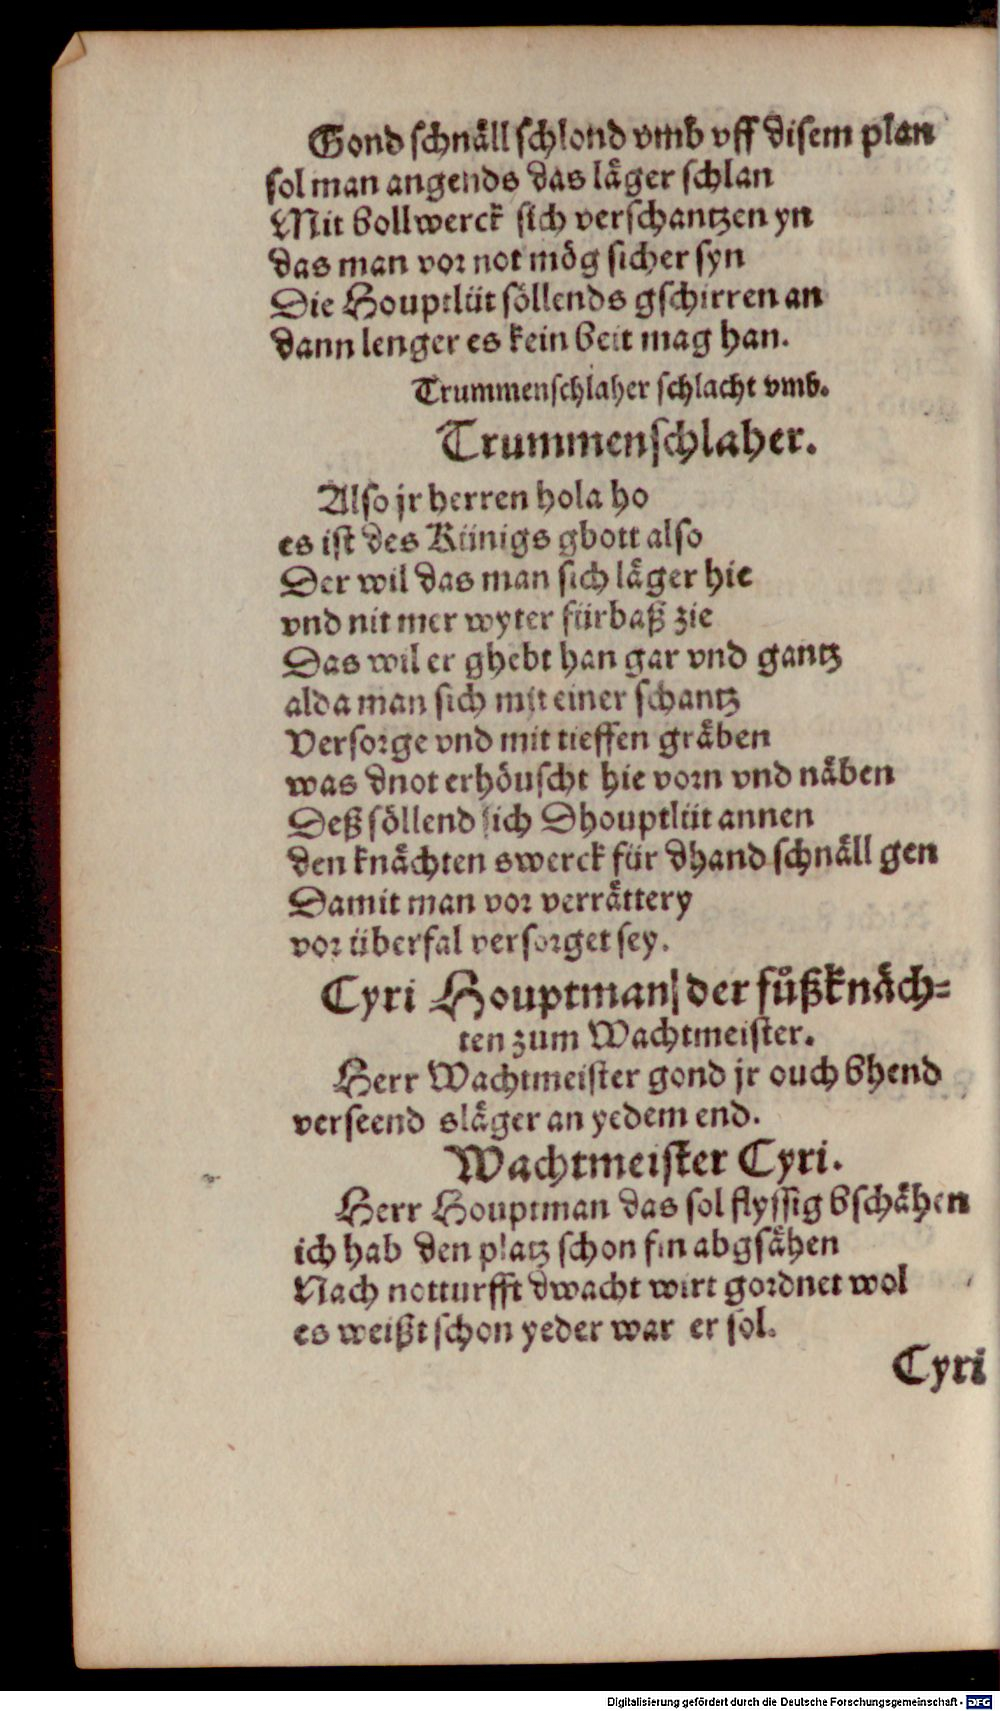 Gond schnäll schlond vmb vff disem plan
sol man angends das läger schlan
Mit bollwerck sich verschantzen yn
das man vor not mög sicher syn
Die Houptlüt söllends gschirren an
dann lenger es kein beit mag han.
Trummenschlaher schlacht vmb.
Trummenschlaher.
Also jr herren hola ho
es ist des Künigs gbott also
Der wil das man sich läger hie
vnd nit mer wyter fürbaß zie
Das wil er ghebt han gar vnd gantz
alda man sich mit einer schantz
Versorge vnd mit tieffen gräben
was dnot erhöuscht hie vorn vnd näben
Deß söllend sich Dhouptlüt annen
den knächten swerck für dhand schnäll gen
Damit man vor verrättery
vor überfal versorget sey.
Cyri Houptman / der fůßknäch⸗
ten zum Wachtmeister.
Herr Wachtmeister gond jr ouch bhend
verseend släger an yedem end.
Wachtmeister Cyri.
Herr Houptman das sol flyssig bschähen
ich hab den platz schon fin abgsähen
Nach notturfft dwacht wirt gordnet wol
es weißt schon yeder war er sol.
Cyri
Digitalisierung gefördert durch die Deutsche Forschungsgemeinschaft - DFG